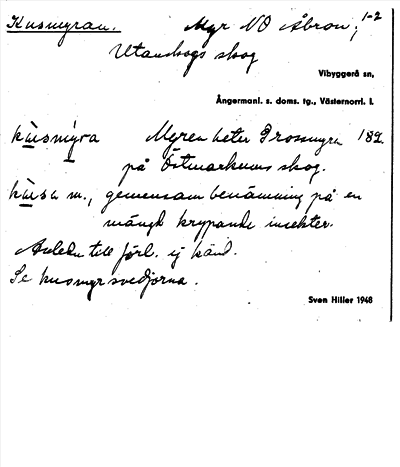 Kusmyran. Myr NO Åbron; 1-2
Utanskogs skog
Vibyggerå sn,
Ångermanl. s. doms. tg., Västernorrl. l.
kùsmýra Myren heter Grossmyra 182.
på Östmarkums skog.
kùsa m., gemensam benämning på en
mängd krypande insekter.
Anledn till förl. ej känd.
Se kusmyrsvedjorna.
Sven Hiller 1948